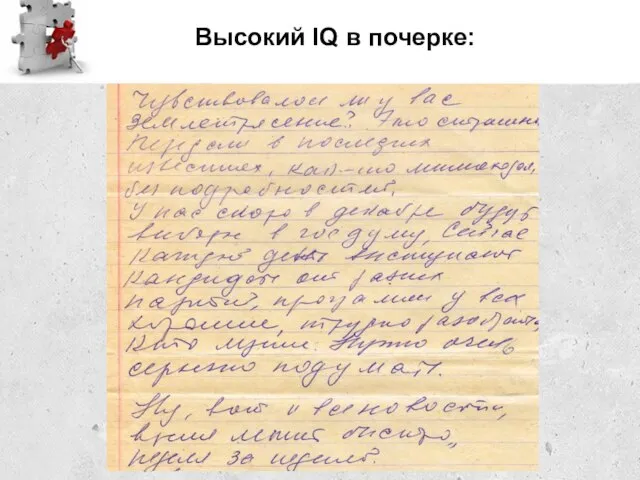 Высокий IQ в почерке:
Чувствовалось ли у вас
землетрясение? Это страшно
Передали в последних
известиях, как-то мимоходом,
без подробностей.
У нас скоро в декабре будут
выборы в госдуму, Сейчас
каждый день выступают
кандидаты от разных
партий, программы у всех
хорошие, трудно разобраться
кто лучше. Нужно очень
серьезно подумать.
Ну, вот и все новости,
время летит быстро,
неделя за неделей.